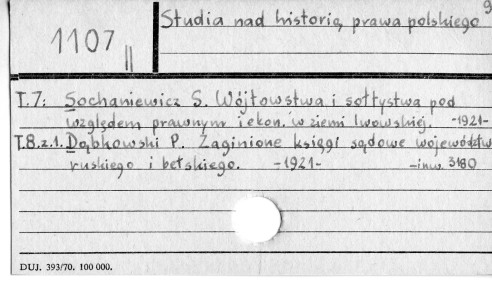 9
Studia nad historią prawa polskiego
1107 ||
T.7: Sochaniewicz S. Wójtowstwa i sołtystwa pod
względem prawnym i ekon. w ziemi lwowskiej. -1921-
T.8.z.1. Dąbkowski P. Zaginione księgi sądowe województ w
ruskiego i bełskiego. -1921- -inw. 3180
DUJ. 393/70. 100 000.